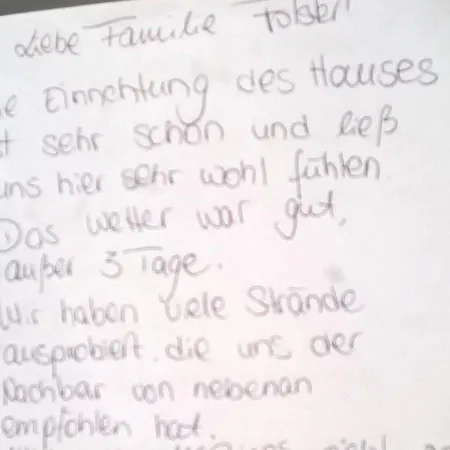 Liebe Familie
e Einrichtung des Hauses
t sehr schön und ließ
uns hier sehr wohl fühlen
Das Wetter war gut,
außer 3 Tage.
Wir haben viele Strände
ausprobiert, die uns der
Nachbar von nebenan
empfohlen hat.